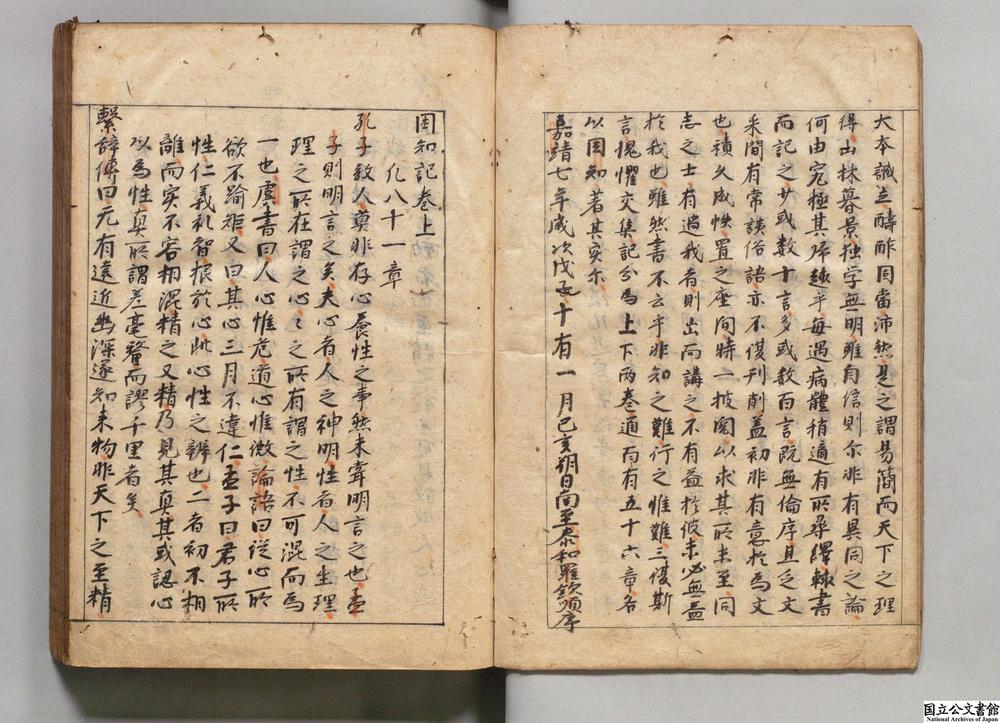 大本誠立酬酢固當沛然是之謂易簡而天下之理
得山林暮景独学無明雖自信則尔非有異同之論
何由究極其歸趣乎每遇病體稍適有所尋繹輒書
而記之少或数十言多或数百言既無倫序且乏文
采間有常談俗語亦不復刊削盖初非有意於為文
也積久成帙置之座间時一披閲以求其所未至同
志之士有過我者則出而講之不有益於彼未必無益
於我也雖然書不云乎非知之難行之惟難三復斯
言愧懼交集記分為上下两巻通百有五十六章名
以困知著其实尓
嘉靖七年歳次戊子十有一月己亥朔日南至泰和羅欽順序
困知記巻上
凡八十一章
孔子教人莫非存心養性之事然未嘗明言之也孟
子則明言之矣夫心者人之神明性者人之生理
理之所在謂之心々之所有謂之性不可混而為
一也虞書曰人心惟危道心惟微論語曰從心所
欲不踰矩又曰其心三月不違仁孟子曰君子所
性仁義礼智根於心此心性之辨也二者初不相
離而实不容相混精之又精乃見其真其或認心
以為性真所謂差毫釐而謬千里者矣
繫辞傳曰无有遠近幽深遂知来物非天下之至精
国立公文書館
National Archives of Japan